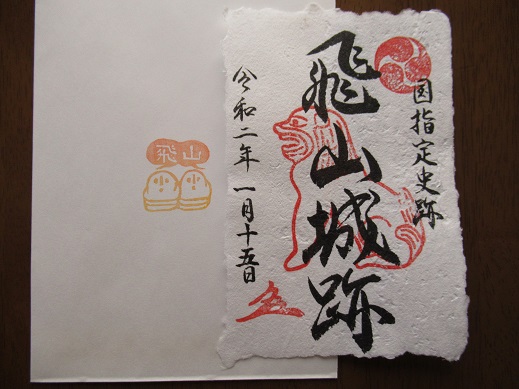 国指定史跡
飛山城跡
令和二年一月十五日
飛山